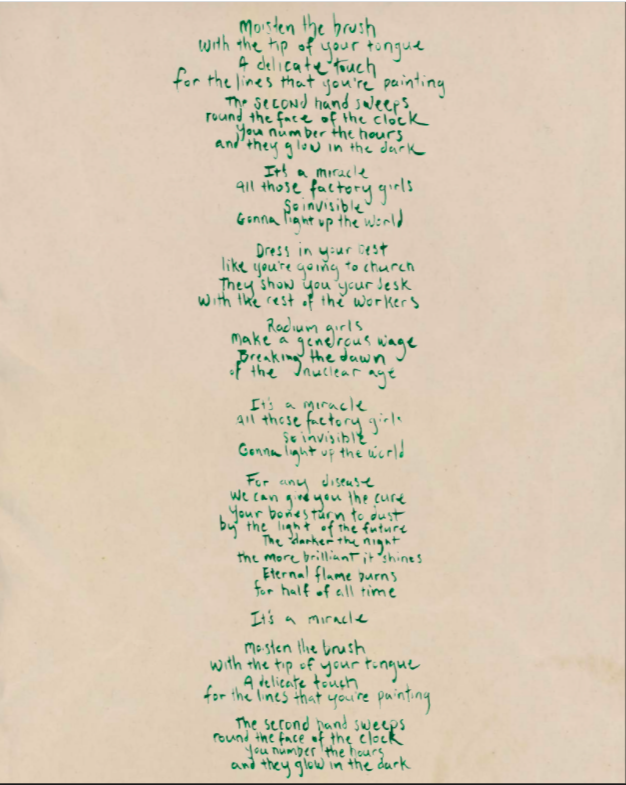 Moisten the brush
with the tip of your tongue
A delicate touch
for the lines that you're painting
The second hand sweeps
round the face of the clock
You number the hours
and they glow in the dark
It's a miracle
all those factory girls
So invisible
Gonna light up the world
Dress in your best
like you're going to church
They show you your desk
with the rest of the workers
Radium girls
make a generous wage
Breaking the dawn
of the nuclear age
It's a miracle
all those factory girls
So invisible
Gonna light up the world
For any disease
We can give you the cure
Your bones turn to dust
by the light of the future
The darker the night
the more brilliant it shines
Eternal flame burns
for half of all time
It's a miracle
Moisten the brush
with the tip of your tongue
A delicate touch
for the lines that you're painting
The second hand sweeps
round the face of the clock
You number the hours
and they glow in the dark